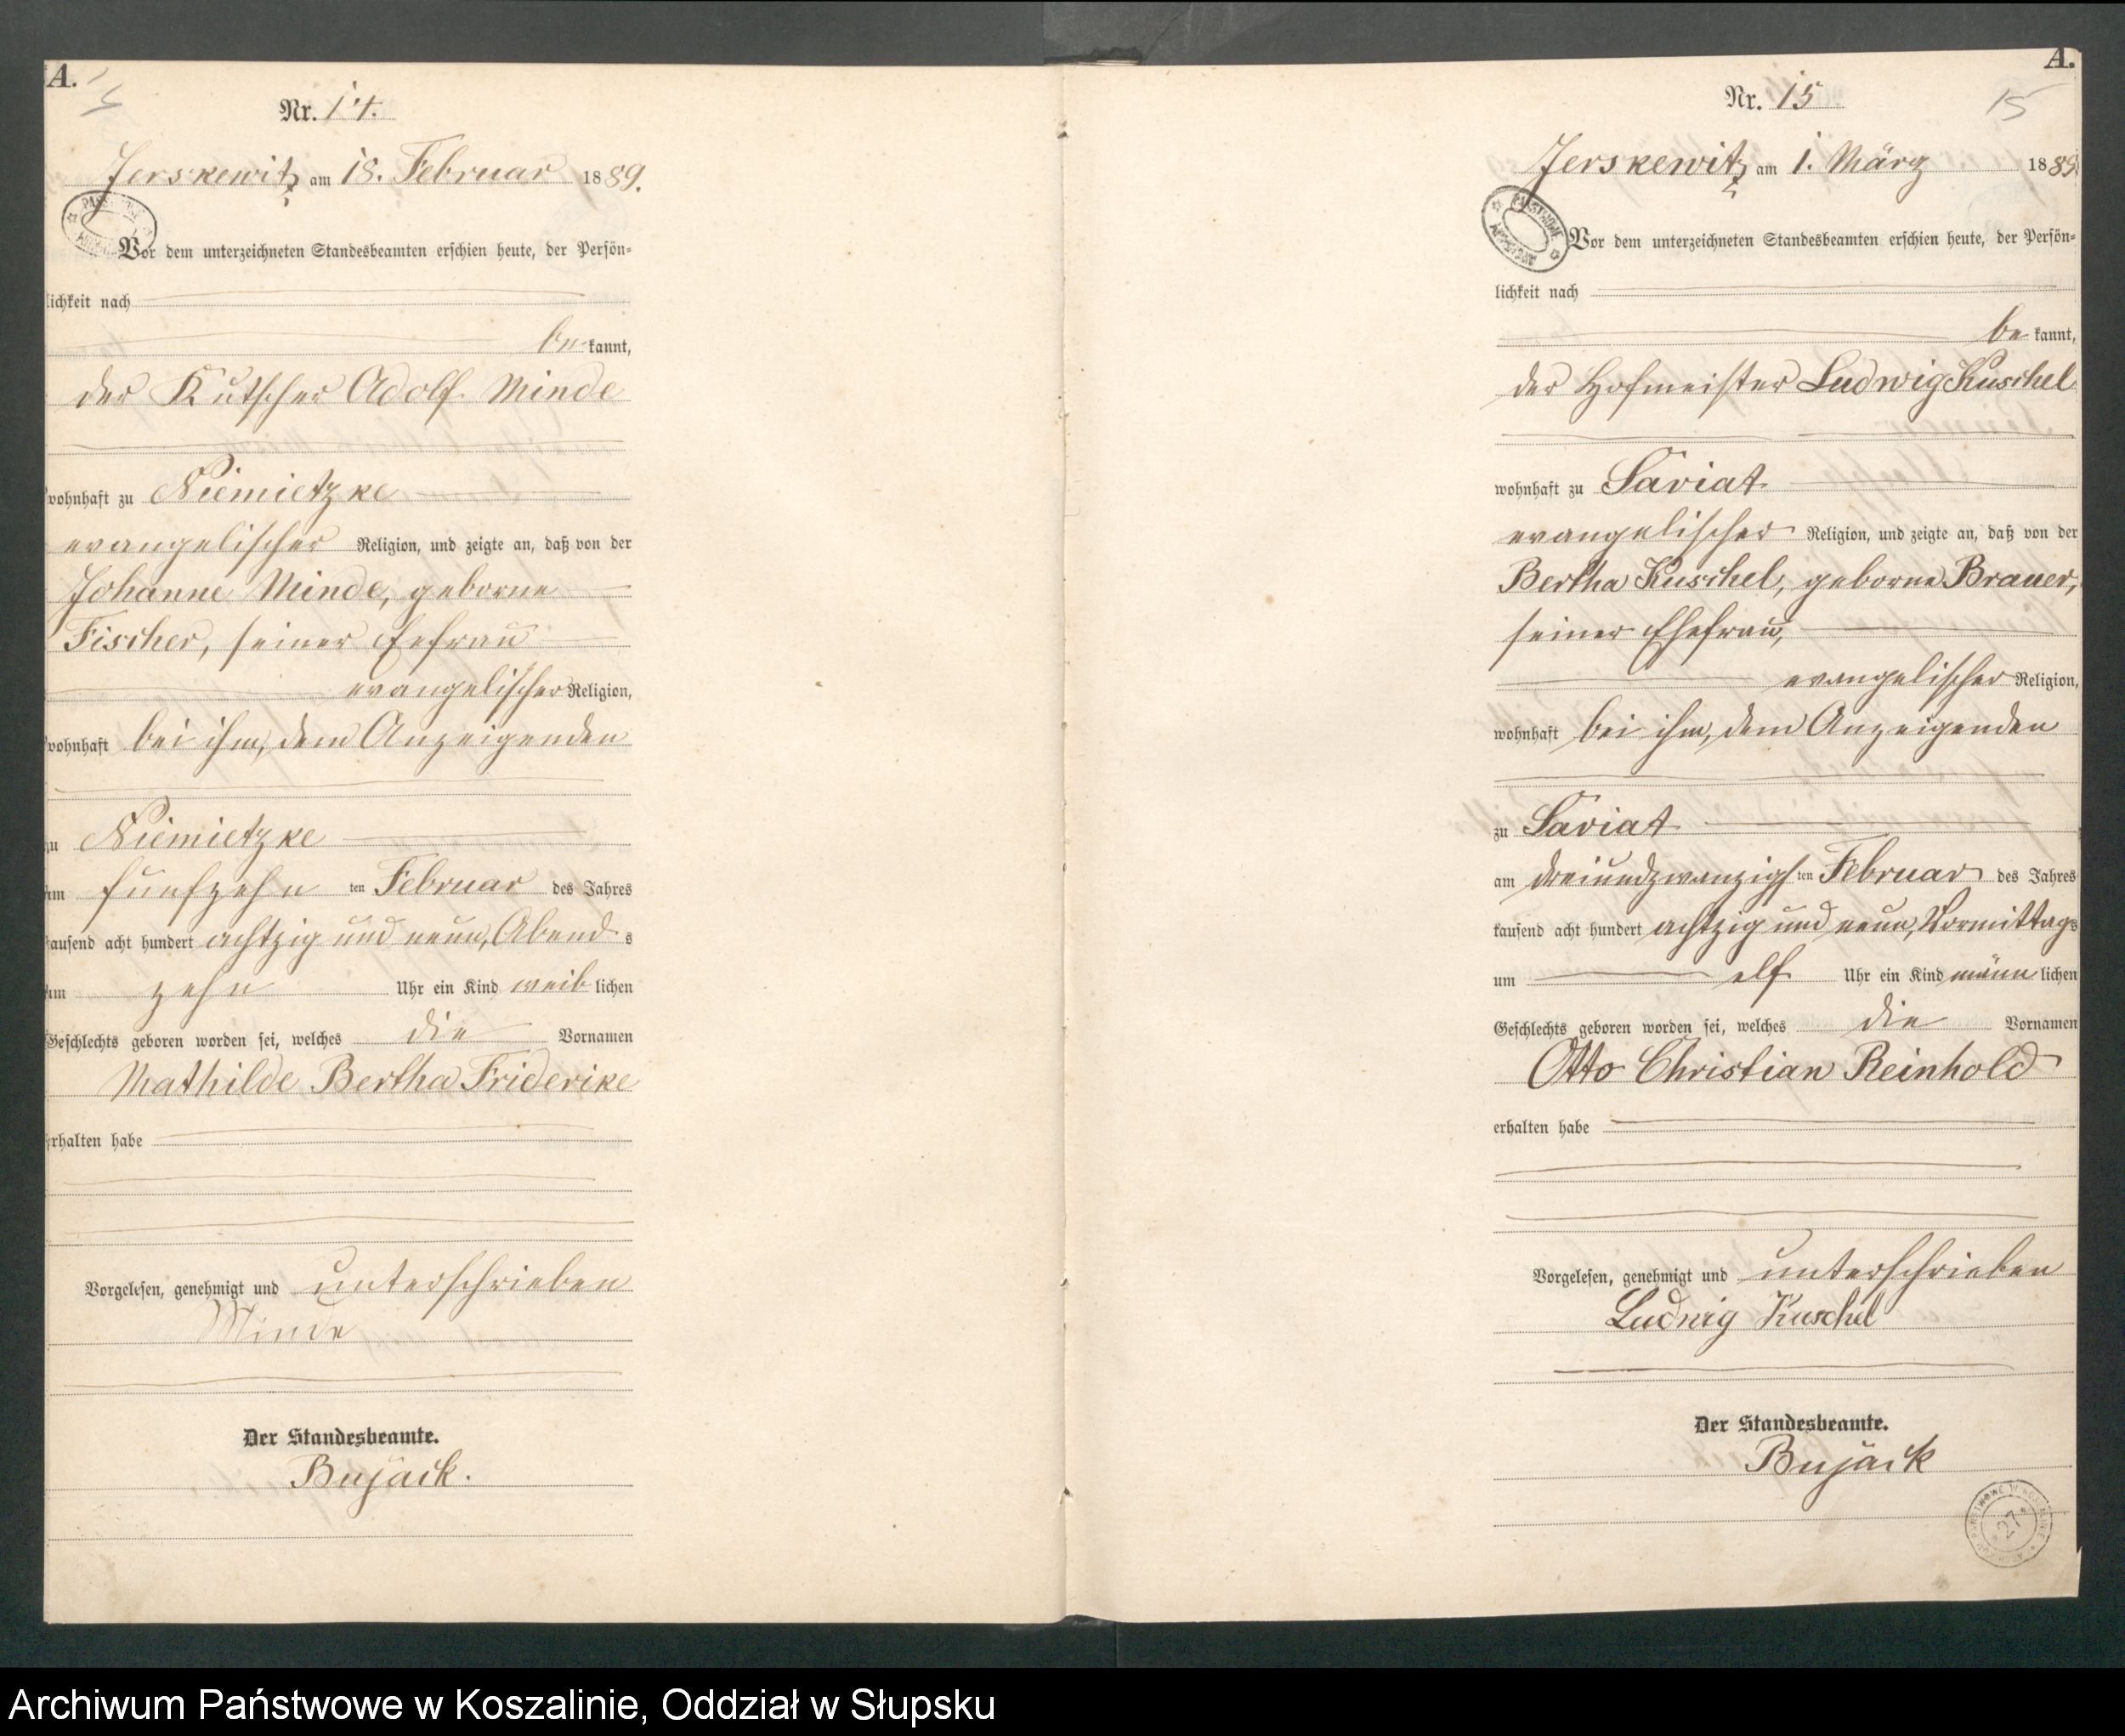 A.
Nr. 14.
Jerskewitz am 18. Februar 1889.
Vor dem unterzeichneten Standesbeamten erschien heute, der Persön=
lichkeit nach
be kannt,
der Kutscher Adolf Minde
wohnhaft zu Niemietzke
evangelischer Religion, und zeigte an, daß von der
Johanne Minde, geborne
Fischer, seiner Eefrau
evangelischer Religion,
wohnhaft bei ihm, dem Anzeigenden
zu Niemietzke
am fünfzehn ten Februar des Jahres
tausend acht hundert achtzig und neun, Abend s
um zehn Uhr ein Kind weib lichen
Geschlechts geboren worden sei, welches die Vornamen
Mathilde Bertha Friderike
erhalten habe
Vorgelesen, genehmigt und unterschrieben
Minde
Der Standesbeamte.
Bujack.
A.
Nr. 15
15
Jerskewitz am 1. März 1889
Vor dem unterzeichneten Standesbeamten erschien heute, der Persön=
lichkeit nach
be kannt,
der Hofmeister Ludwig Kuschel
wohnhaft zu Saviat
evangelischer Religion, und zeigte an, daß von der
Bertha Kuschel, geborne Brauer,
seiner Ehefrau,
evangelischer Religion,
wohnhaft bei ihm, dem Anzeigenden
zu Saviat
am dreiundzwanzigs ten Februar des Jahres
tausend acht hundert achtzig und neun, Vormittags
um elf Uhr ein Kind männ lichen
Geschlechts geboren worden sei, welches die Vornamen
Otto Christian Reinhold
erhalten habe
Vorgelesen, genehmigt und unterschrieben
Ludwig Kuschel
Der Standesbeamte.
Bujack
27
Archiwum Państwowe w Koszalinie, Oddział w Słupsku